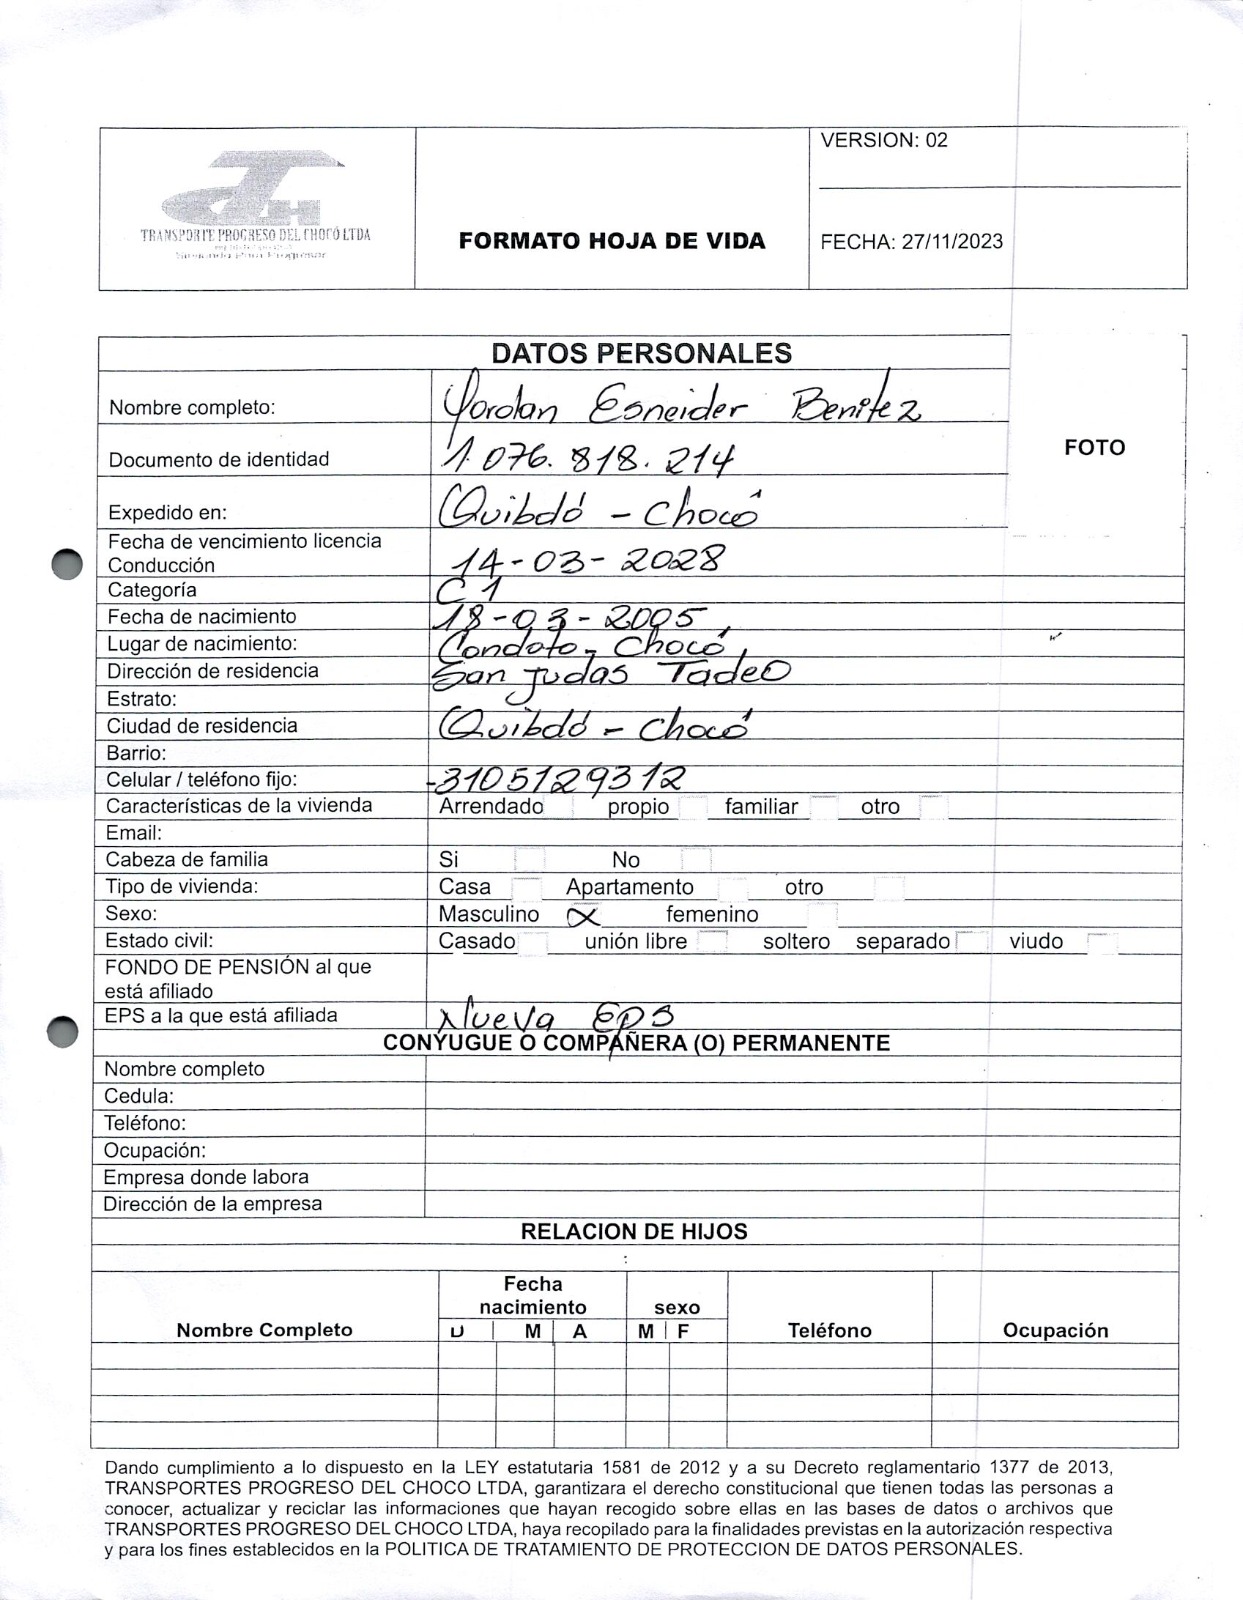 VERSION: 02
TRANSPORTE PROGRESO DEL CHOCÓ LTDA
FORMATO HOJA DE VIDA
FECHA: 27/11/2023
DATOS PERSONALES
Nombre completo: Yordan Esneider Benitez
FOTO
Documento de identidad 1.076.818.214
Expedido en: Quibdó - Chocó
Fecha de vencimiento licencia
Conducción 14-03-2028
Categoría C1
Fecha de nacimiento 18-03-2005
Lugar de nacimiento: Condoto - Chocó
Dirección de residencia San Judas Tadeo
Estrato:
Ciudad de residencia Quibdó - Chocó
Barrio:
Celular / teléfono fijo: -3105129312
Características de la vivienda Arrendado propio familiar otro
Email:
Cabeza de familia Si No
Tipo de vivienda: Casa Apartamento otro
Sexo: Masculino X femenino
Estado civil: Casado unión libre soltero separado viudo
FONDO DE PENSIÓN al que
está afiliado
EPS a la que está afiliada Nueva EPS
CONYUGUE O COMPAÑERA (O) PERMANENTE
Nombre completo
Cedula:
Teléfono:
Ocupación:
Empresa donde labora
Dirección de la empresa
RELACION DE HIJOS
:
Fecha
nacimiento sexo
Nombre Completo D M A M F Teléfono Ocupación
Dando cumplimiento a lo dispuesto en la LEY estatutaria 1581 de 2012 y a su Decreto reglamentario 1377 de 2013,
TRANSPORTES PROGRESO DEL CHOCO LTDA, garantizara el derecho constitucional que tienen todas las personas a
conocer, actualizar y reciclar las informaciones que hayan recogido sobre ellas en las bases de datos o archivos que
TRANSPORTES PROGRESO DEL CHOCO LTDA, haya recopilado para la finalidades previstas en la autorización respectiva
y para los fines establecidos en la POLITICA DE TRATAMIENTO DE PROTECCION DE DATOS PERSONALES.